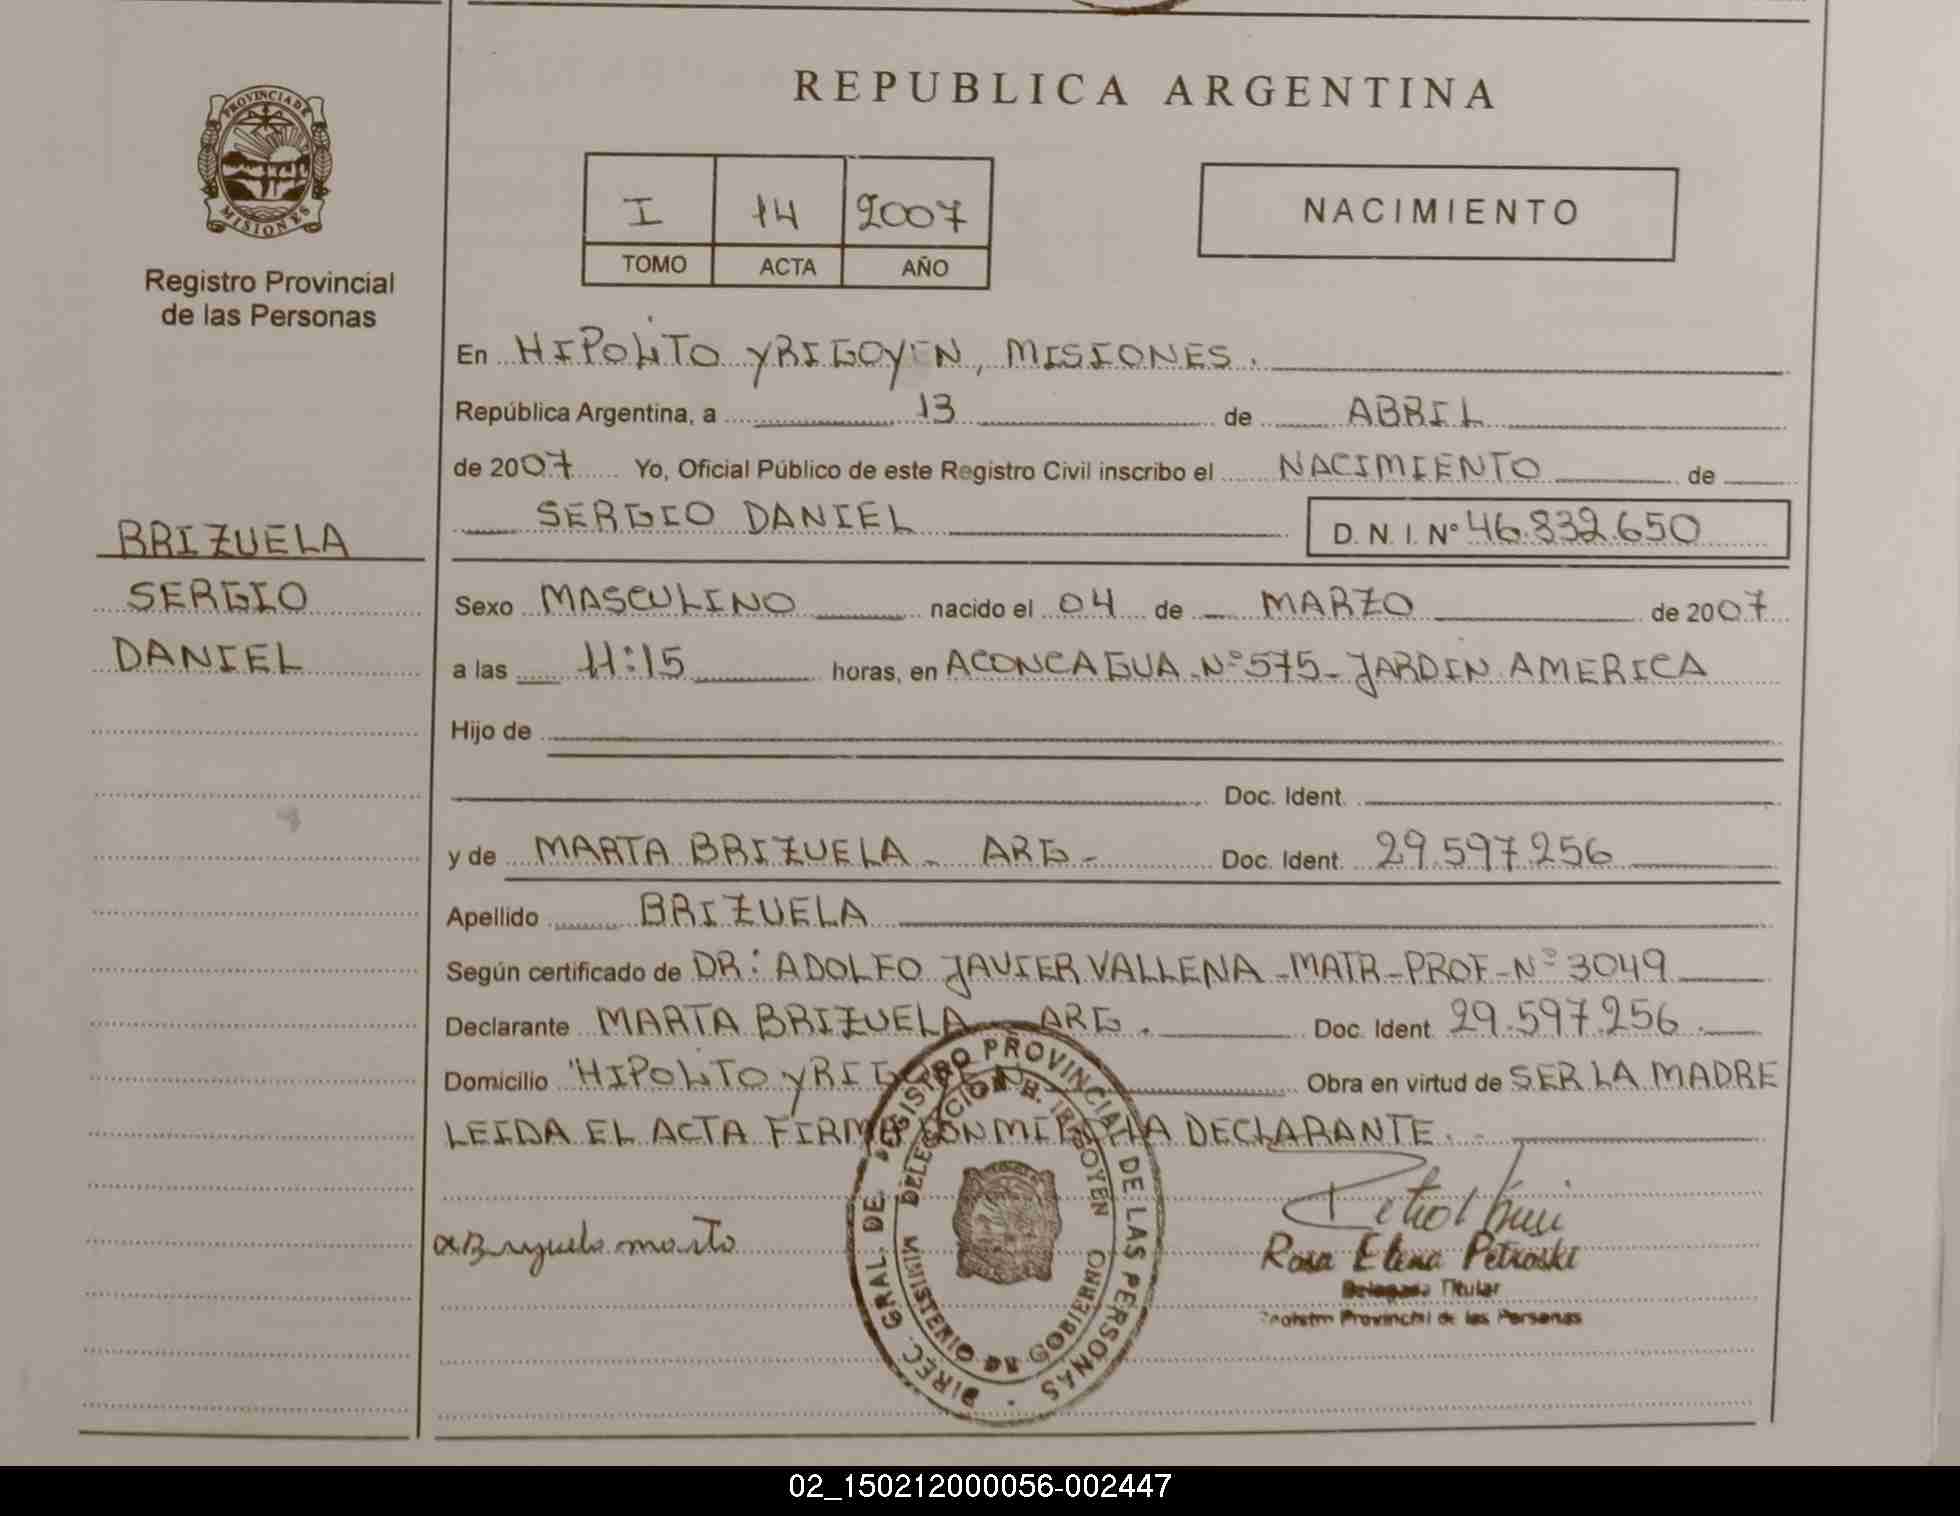 REPUBLICA ARGENTINA
PROVINCIA DE
MISIONES
Registro Provincial
de las Personas
I 14 2007
TOMO ACTA AÑO
NACIMIENTO
En HIPOLITO YRIGOYEN, MISIONES.
República Argentina, a 13 de ABRIL
de 2007 Yo, Oficial Público de este Registro Civil inscribo el NACIMIENTO de
SERGIO DANIEL D. N. I. Nº 46.832.650
BRIZUELA
SERGIO
DANIEL
Sexo MASCULINO nacido el 04 de MARZO de 2007
a las 11:15 horas, en ACONCAGUA Nº 575 - JARDIN AMERICA
Hijo de
Doc. Ident.
y de MARTA BRIZUELA - ARG - Doc. Ident. 29.597.256
Apellido BRIZUELA
Según certificado de DR: ADOLFO JAVIER VALLENA - MATR - PROF - Nº 3049
Declarante MARTA BRIZUELA ARG. Doc. Ident. 29.597.256
Domicilio HIPOLITO Obra en virtud de SER LA MADRE
LEIDA EL ACTA FIRMA CON MI LA DECLARANTE.
DIREC. GRAL. DE REGISTRO PROVINCIAL DE LAS PERSONAS
DELEGACION H. IRIGOYEN
MINISTERIO DE GOBIERNO
Brizuela marta
Rosa Elena Petroski
Delegada Titular
Registro Provincial de las Personas
02_150212000056-002447